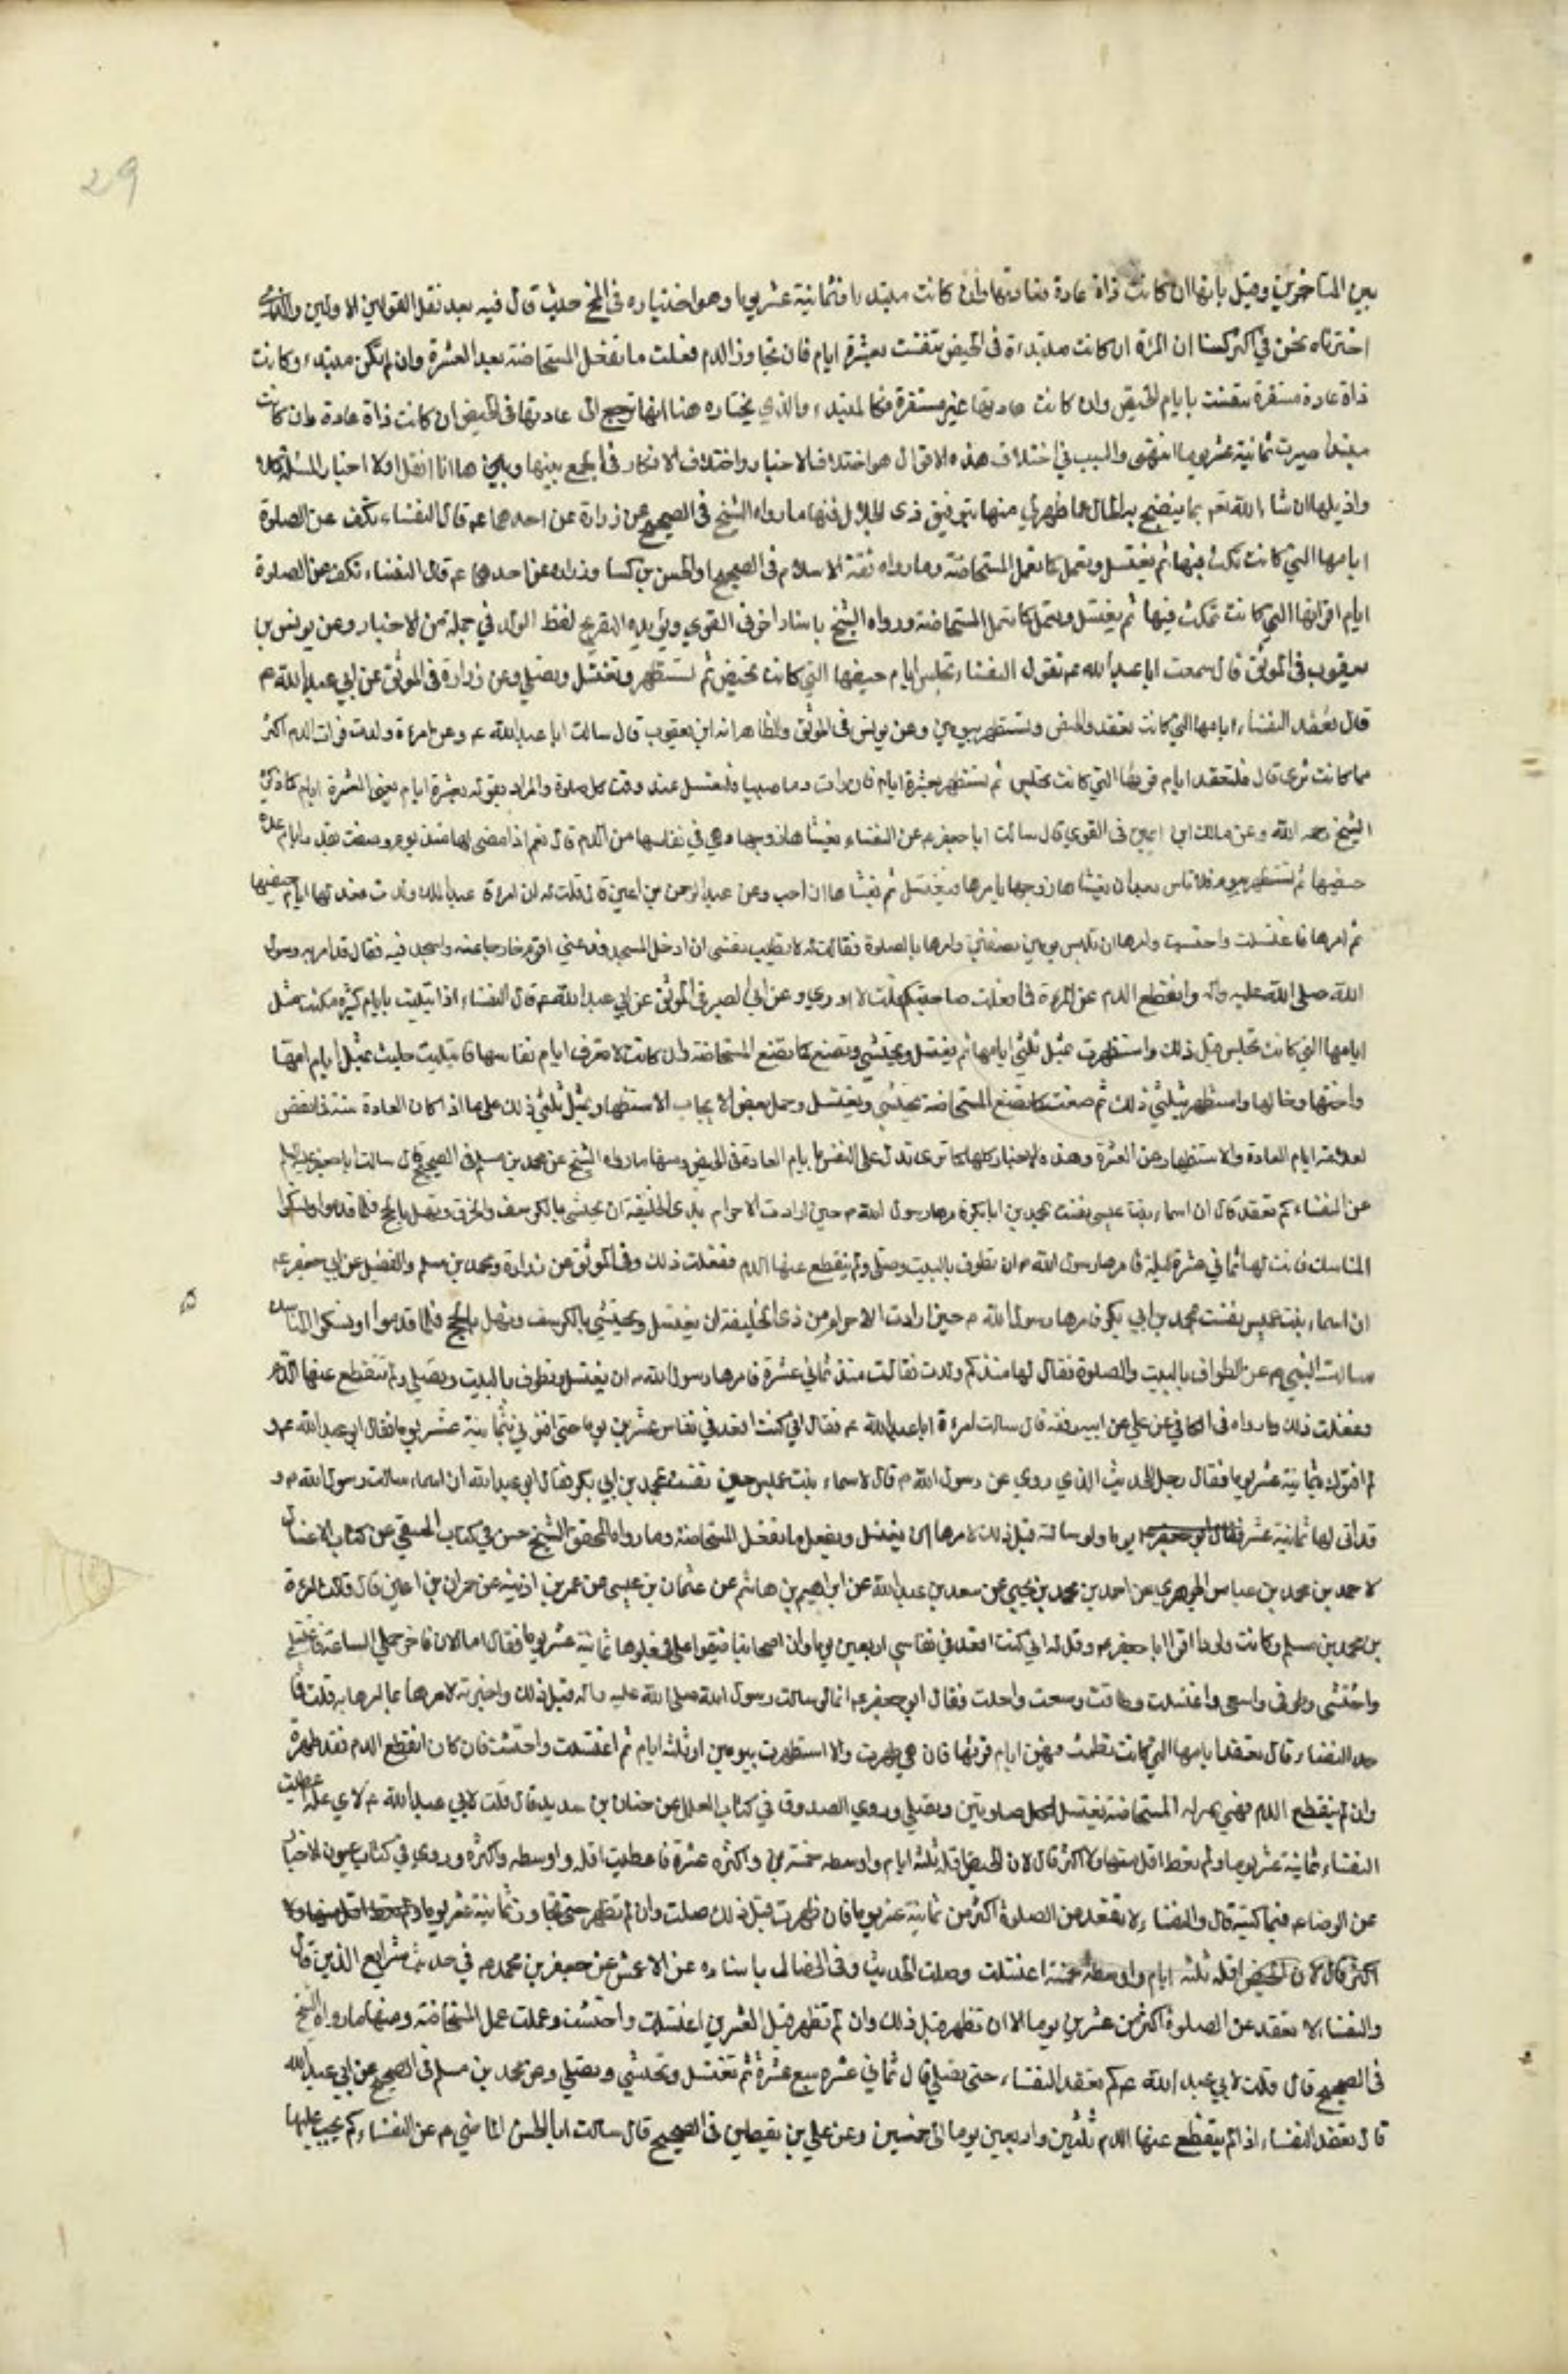 29
بين المتاخرين وقيل بانها ان كانت ذاة عادة فعادتها وان كانت مبتدءة فثمانية عشر يوما وهو اختياره في المخ حيث قال فيه بعد نقل القولين الاولين والذي
اخترناه نحن في اكثر كتبنا ان المرءة ان كانت مبتدءة في الحيض تنفست بعشرة ايام فان تجاوز الدم فعلت ما تفعل المستحاضة بعد العشرة وان لم تكن مبتدءة وكانت
ذاة عادة مستقرة تنفست بايام الحيض وان كانت عادتها غير مستقرة فكالمبتدءة والذي نختاره هنا انها ترجع الى عادتها في الحيض ان كانت ذاة عادة وان كانت
مبتدءة صبرت ثمانية عشر يوما انتهى والسبب في اختلاف هذه الاقوال هو اختلاف الاخبار واختلاف الافكار في الجمع بينها وها انا انقل اولا اخبار المسئلة
واذيلها ان شاء الله تعم بما يتضح به الحال مما ظهر لي منها بتوفيق ذي الجلال فمنها ما رواه الشيخ في الصحيح عن زرارة عن احدهما عم قال النفساء تكف عن الصلوة
ايامها التي كانت تمكث فيها ثم تغتسل وتعمل كما تعمل المستحاضة وما رواه ثقة الاسلام في الصحيح او الحسن وزراره عن احدهما عم قال النفساء تكف عن الصلوة
ايام اقرائها التي كانت تمكث فيها ثم تغتسل وتعمل كما تعمل المستحاضة ورواه الشيخ باسناد اخر في القوي لفظ في جملة من الاخبار وعن يونس بن
يعقوب في الموثق قال سمعت ابا عبد الله عم يقول النفساء تجلس ايام حيضها التي كانت تحيض ثم تستظهر وتغتسل وتصلي وعن زرارة في الموثق عن ابي عبد الله م
قال تقعد النفساء ايامها التي كانت تقعد في الحيض وتستظهر بيومين وعن يونس في الموثق والظاهر انه ابن يعقوب قال سالت ابا عبد الله عم وعن امرءة ولدت فرات الدم اكثر
مما كانت ترى قال فلتقعد ايام قرءها التي كانت تجلس ثم تستظهر بعشرة ايام فان رات دما صبيبا فلتغتسل عند وقت كل صلوة والمراد بقوله بعشرة ايام يعني الى عشرة ايام كما ذكره
الشيخ رحمه الله وعن مالك ابن اعين في القوي قال سالت ابا جعفر عم عن النفساء يغشاها زوجها وهي في نفاسها من الدم قال نعم اذا مضى لها منذ يوم وضعت بقدر ايام عدة
حيضها ثم تستظهر بيوم فلا باس بعد ان يغشاها زوجها يامرها فتغتسل ثم يغشاها ان احب وعن عبد الرحمن بن اعين قال قلت له ان امرءة عبد الملك ولدت فعد لها ايام حيضها
ثم امرها فاغتسلت واحتشت وامرها ان تلبس ثوبين نظيفين وامرها بالصلوة فقالت له لا تطيب نفسي ان ادخل المسجد فدعني اقوم خارجا عنه واسجد فيه فقال قد امر به رسول
الله صلى الله عليه واله وانقطع الدم عن المرءة فما فعلت صاحبتكم قلت لا ادري وعن ابي بصير في الموثق عن ابي عبد الله عم قال النفساء اذا ابتليت بايام كثيرة مكثت مثل
ايامها التي كانت تجلس قبل ذلك واستظهرت بمثل ثلثي ايامها ثم تغتسل وتحتشي وتصنع كما تصنع المستحاضة وان كانت لا تعرف ايام نفاسها فابتليت جلست بمثل ايام امها
واختها وخالتها واستظهرت بثلثي ذلك ثم صنعت كما تصنع المستحاضة تحتشي وتغتسل وحمل بعض الاستظهار بمثل ثلثي ذلك على ما اذا كان العادة ستة
ايام العادة والاستظهار عن العشرة وهذه الاخبار كلها كما ترى تدل على ايام العادة في الحيض ومنها ما رواه الشيخ عن محمد بن مسلم في الصحيح قال سالت ابا جعفر عليه السلم
عن النفساء كم تقعد قال ان اسماء بنت عميس نفست بمحمد بن ابي بكر فامرها رسول الله م حين ارادت الاحرام بذي الحليفة ان تحتشي بالكرسف والخرق وتهل بالحج فلما قدموا ونسكوا
المناسك فاتت لها ثماني عشرة ليلة فامرها رسول الله م ان تطوف بالبيت وتصلي ولم ينقطع عنها الدم ففعلت ذلك وفي الموثق عن زرارة ومحمد بن مسلم والفضيل عن ابي جعفر عم
ان اسماء بنت عميس نفست بمحمد بن ابي بكر فامرها رسول الله م حين ارادت الاحرام من ذي الحليفة ان تغتسل وتحتشي بالكرسف وتهل بالحج فلما قدموا ونسكوا المناسك
سالت النبي م عن الطواف بالبيت والصلوة فقال لها منذ كم ولدت فقالت منذ ثماني عشرة فامرها رسول الله م ان تغتسل وتطوف بالبيت وتصلي ولم ينقطع عنها الدم
ففعلت ذلك وما رواه في الكافي عن علي عن ابيه رفعه قال سالت امرءة ابا عبد الله عم فقال اني كنت اقعد في نفاسي عشرين يوما حتى افتوني بثمانية عشر يوما فقال ابو عبد الله عم و
لم افتوك بثمانية عشر يوما فقال رجل للحديث الذي روي عن رسول الله م قال لاسماء بنت عميس حين نفست بمحمد بن ابي بكر فقال ابو عبد الله ان اسماء سالت رسول الله م و
قد اتى لها ثمانية عشر يوما ولو سالته قبل ذلك لامرها ان تغتسل وتفعل ما تفعل المستحاضة وما رواه المحقق الشيخ حسن في كتاب المنتقى عن كتاب الاغسال
لاحمد بن محمد بن عياش الجوهري عن احمد بن محمد بن يحيى عن سعد بن عبد الله عن ابراهيم بن هاشم عن عثمان بن عيسى عن عمر بن اذينه عن حمران بن اعين قال قالت امرءة
بن محمد بن مسلم وكانت ولودا اقرا ابا جعفر عم وقل له اني كنت اقعد في نفاسي اربعين يوما وان اصحابنا ضيقوا علي فجعلوها ثمانية عشر يوما
واحتشي وطوفي واسعى واغتسلت وطافت وسعت واحلت فقال ابو جعفر عم انها لو سالت رسول الله صلى الله عليه واله قبل ذلك واخبرته لامرها بما امرها به قلت فما
حد النفساء قال تقعد ايامها التي كانت تطمث فيهن ايام قرئها فان هي طهرت والا استظهرت بيومين او ثلثه ايام ثم اغتسلت واحتشت فان كان انقطع الدم فقد طهرت
وان لم ينقطع الدم فهي بمنزلة المستحاضة تغتسل لكل صلوتين وتصلي وروى الصدوق في كتاب العلل عن حنان بن سدير قال قلت لابي عبد الله م لاي علة اعطيت
النفساء ثمانية عشر يوما ولم تعط اقل منها ولا اكثر قال لان الحيض اقله ثلثه ايام واوسطه خمسة واكثره عشرة فاعطيت اقله واوسطه واكثره وروى في كتاب عيون الاخبار
عن الرضا عم فيما كتبه قال والنفساء لا تقعد عن الصلوة اكثر من ثمانية عشر يوما فان طهرت قبل ذلك صلت وان لم تطهر حتى تجاوز ثمانية عشر يوما ولم تعط اقل منها ولا
اكثر قال لان الحيض اقله ثلثه ايام واوسطه خمسة اغتسلت وصلت الحديث وفي الخصال باسناده عن الاعمش عن جعفر بن محمد م في حديث شرايع الدين قال
والنفساء لا تقعد عن الصلوة اكثر من عشرين يوما الا ان تطهر قبل ذلك وان لم تطهر قبل العشرين اغتسلت واحتشت وعملت عمل المستحاضة ومنها ما رواه الشيخ
في الصحيح قال قلت لابي عبد الله عم كم تقعد النفساء حتى تصلي قال ثماني عشره سبع عشرة ثم تغتسل وتحتشي وتصلي وعن محمد بن مسلم في الصحيح عن ابي عبد الله
قال تقعد النفساء اذا لم ينقطع عنها الدم ثلثين واربعين يوما الى خمسين وعن علي بن يقطين في الصحيح قال سالت ابا الحسن الماضي م عن النفساء كم يجب عليها